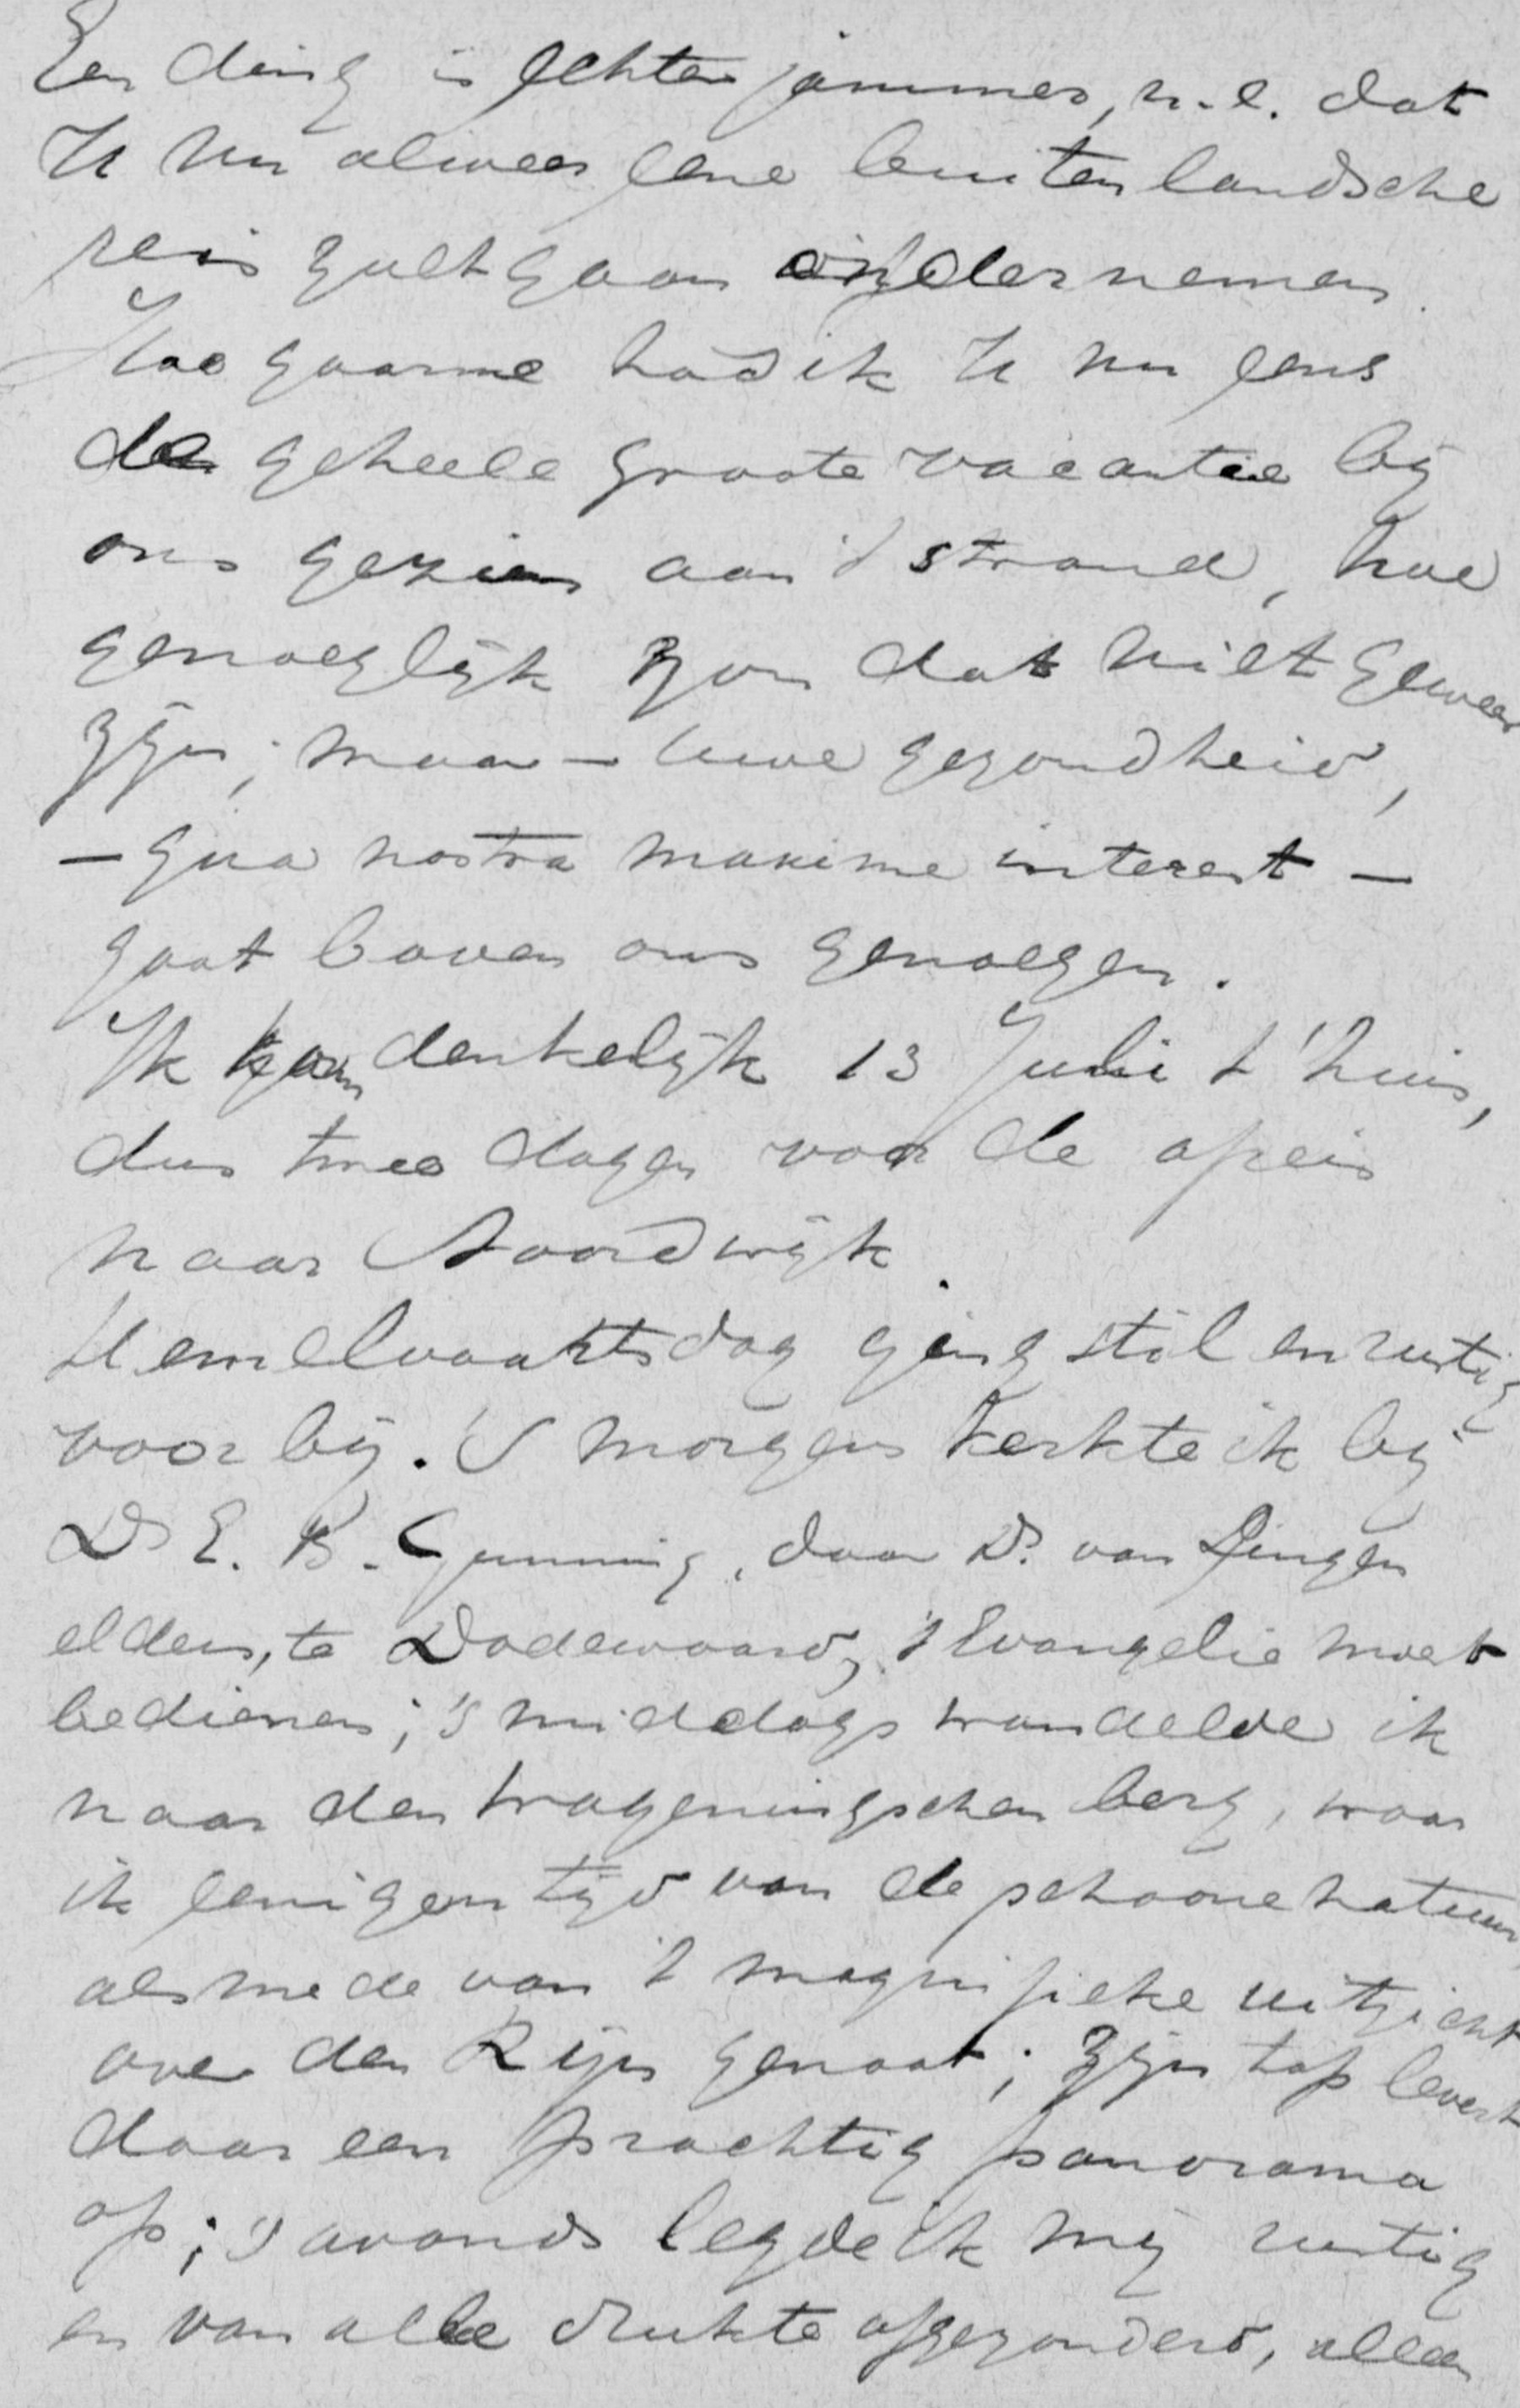 Een ding is echter jammer, n.l. dat
U nu alweer eene buitenlandsche
reis zult gaan ondernemen.
Hoe gaarne had ik U nu eens
de geheele groote vacantie bij
ons gezien aan 't strand, hoe
genoeglijk zou dat niet geweest
zijn; maar – uwe gezondheid,
– qua nostra maxime interest –
gaat boven ons genoegen.
Ik kom denkelijk 13 Juli t'huis,
dus twee dagen voor de afreis
naar Noordwijk.
Hemelvaartsdag ging stil en rustig
voorbij. 's Morgens kerkte ik bij
Ds E. B. Gunning, daar Ds. van Dingen
elders, te Dodewaard, 't Evangelie moest
bedienen; 's middags wandelde ik
naar den Wageningschen berg, waar
ik eenigen tijd van de schoone natuur,
alsmede van 't magnifieke uitzicht
over den Rijn genoot; zijn top levert
daar een prachtig panorama
op; 's avonds legde ik mij rustig
en van alle drukte afgezonderd, alleen